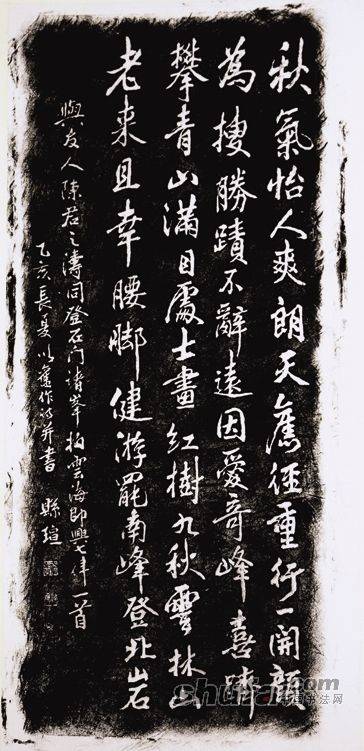 秋氣怡人爽朗天舊徑重行一開顏
為搜勝蹟不辭遠因愛奇峰喜躋
攀青山滿目處士畫紅樹九秋雲林山
老來且幸腰脚健游罷南峰登北岩
與友人陳君之濤同登石門諸峯拍雲海即興七律一首
乙亥長夏以舊作詩并書 縣瑄